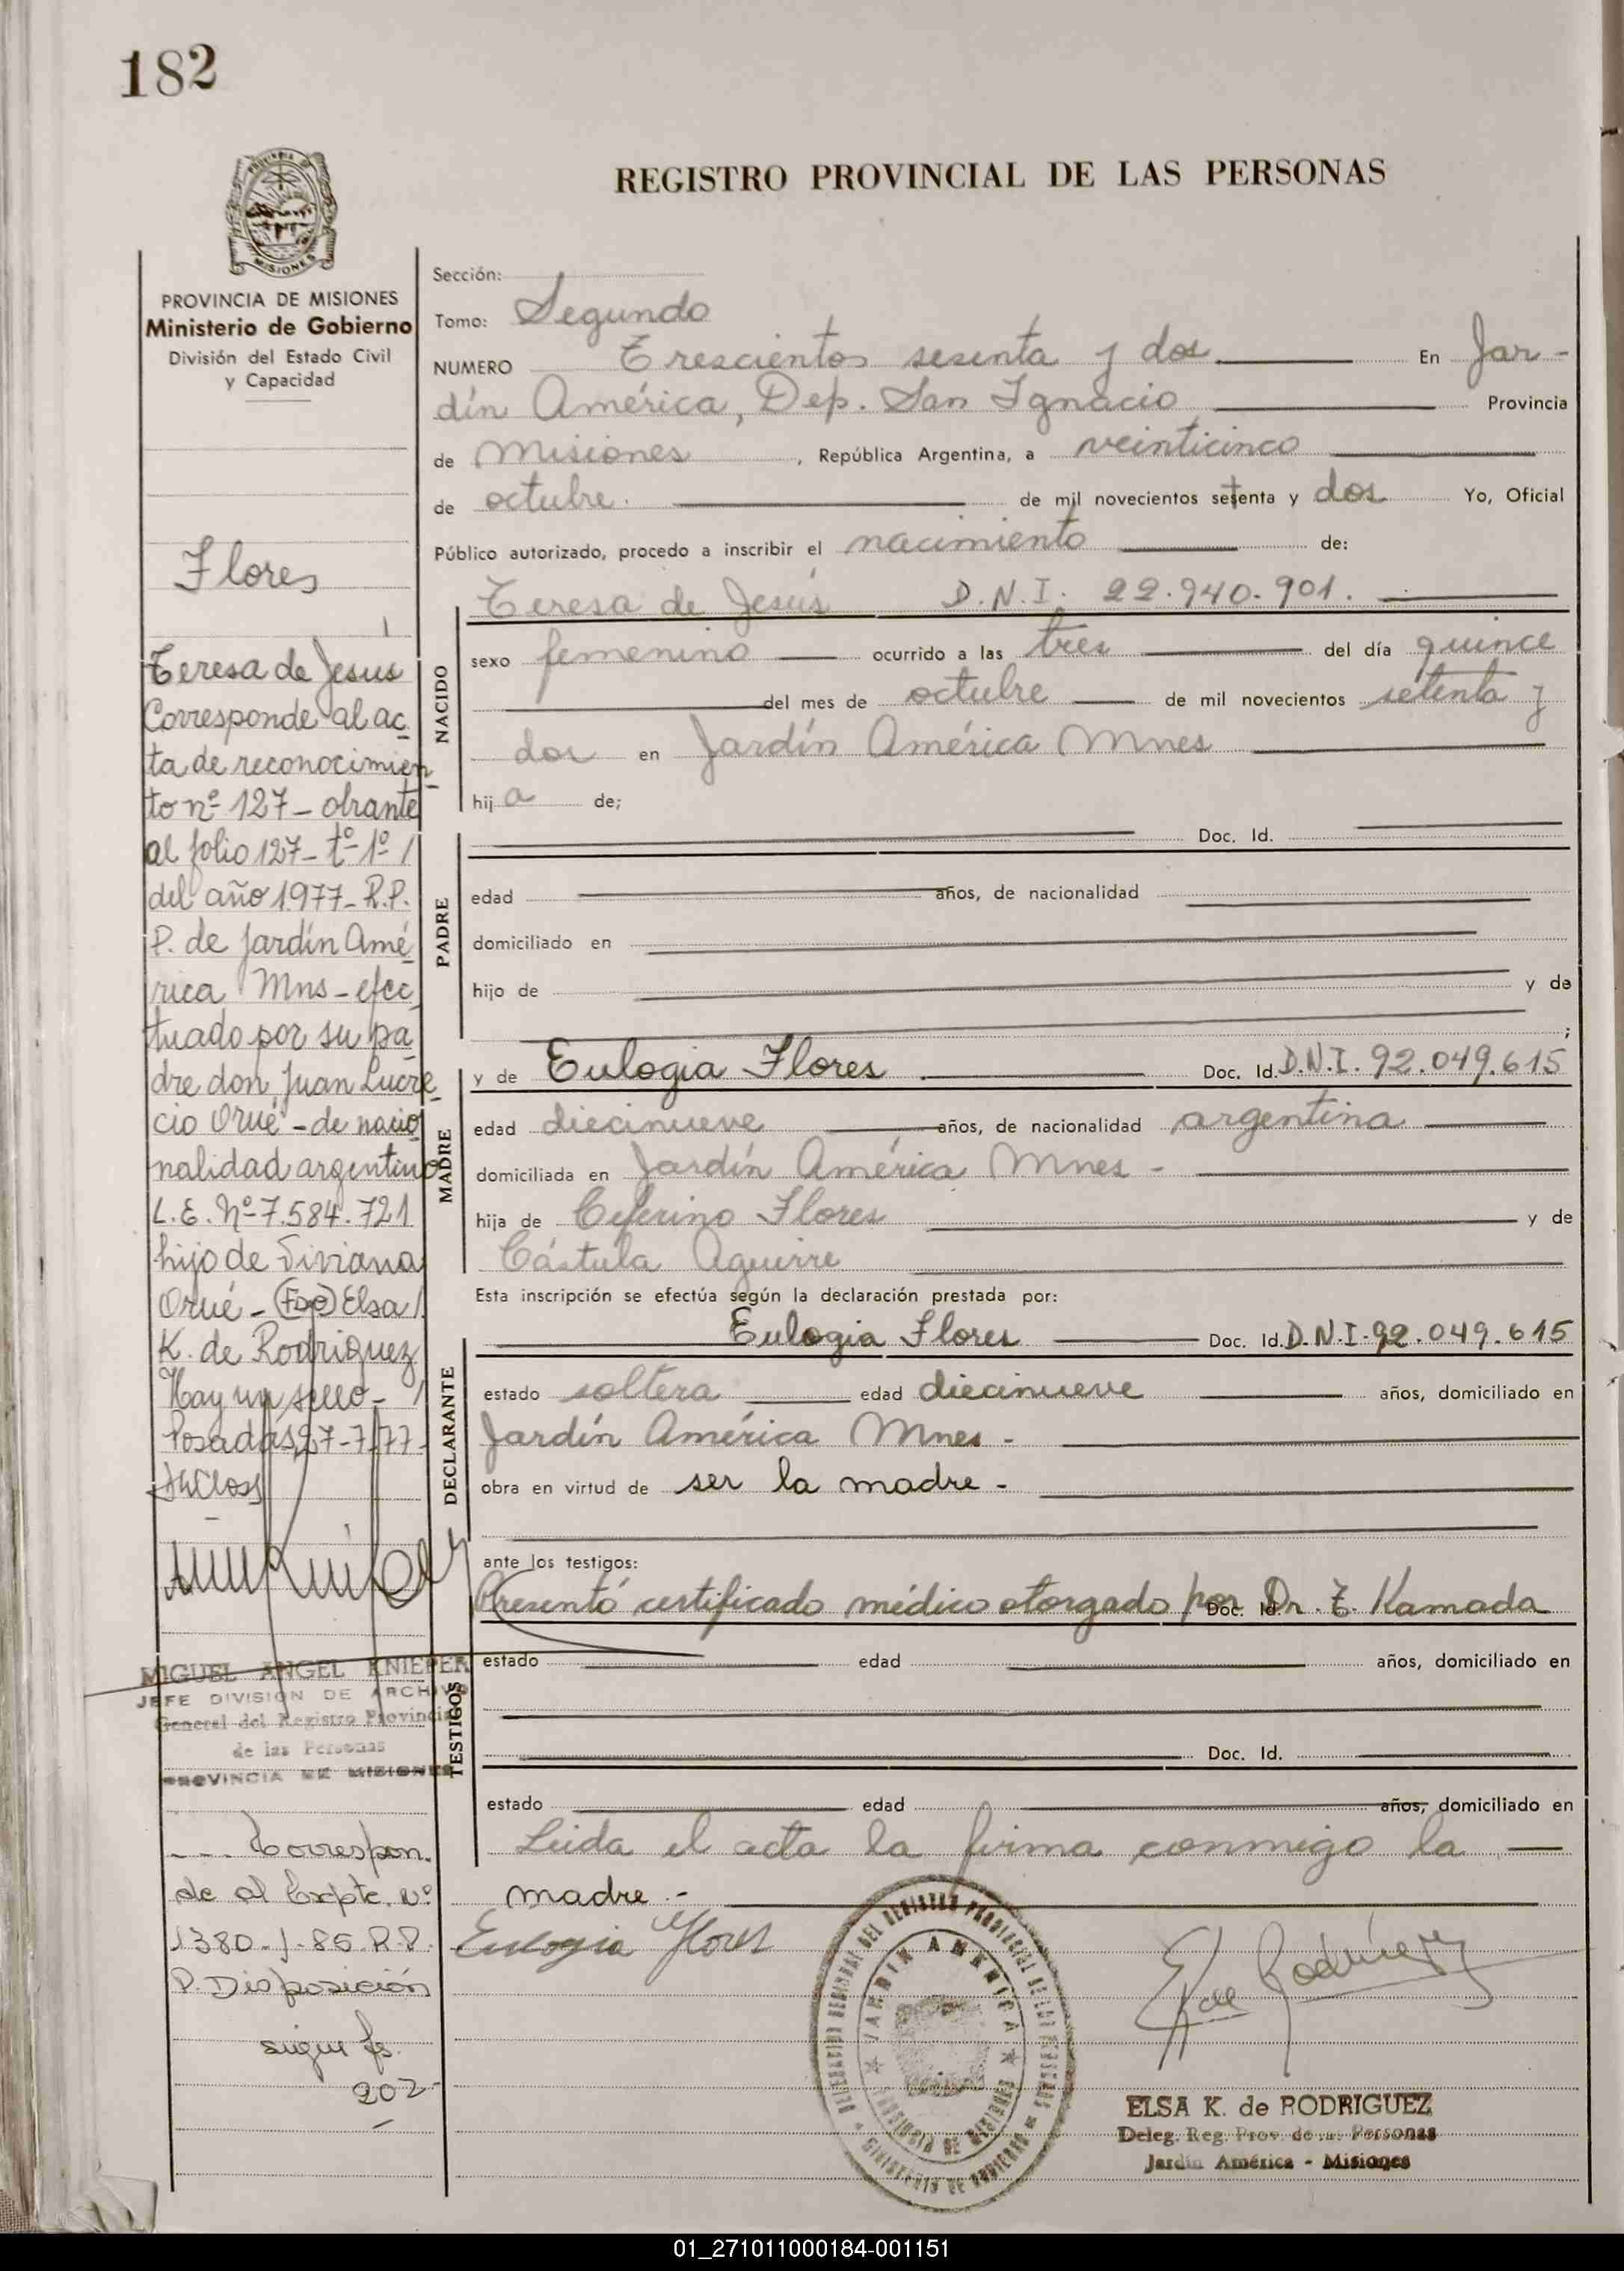 182
REGISTRO PROVINCIAL DE LAS PERSONAS
MISIONES
PROVINCIA DE MISIONES
Ministerio de Gobierno
División del Estado Civil
y Capacidad
Flores
Teresa de Jesús
Corresponde al ac
ta de reconocimien
to nº 127 - obrante
al folio 127 - tº 1º /
del año 1977 - R.P.
P. de Jardín Amé
rica Mns - efec
tuado por su pa
dre don Juan Lucre
cio Orué - de nacio
nalidad argentino
L.E. Nº 7.584.721
hijo de Viviana
Orué - (Fdo) Elsa /
K. de Rodriguez
Hay un sello - /
Posadas, 27-7-77-
MIGUEL ANGEL KNIEPER
JEFE DIVISION DE ARCHIVO
General del Registro Provincial
de las Personas
PROVINCIA DE MISIONES
--- Correspon.
de al Expte. Nº
1380-J-85. R.P.
P. Disposición
sigue fs.
202-
Sección:
Tomo: Segundo
NUMERO Trescientos sesenta y dos En Jar-
dín América, Dep. San Ignacio Provincia
de Misiones, República Argentina, a veinticinco
de octubre. de mil novecientos setenta y dos Yo, Oficial
Público autorizado, procedo a inscribir el nacimiento de:
NACIDO
Teresa de Jesús D.N.I. 22.940.901.
sexo femenino ocurrido a las tres del día quince
del mes de octubre de mil novecientos setenta y
dos en Jardín América Mnes
hija de;
PADRE
Doc. Id.
edad años, de nacionalidad
domiciliado en
hijo de y de
;
MADRE
y de Eulogia Flores Doc. Id. D.N.I. 92.049.615
edad diecinueve años, de nacionalidad argentina
domiciliada en Jardín América Mnes -
hija de Ceferino Flores y de
Cástula Aguirre
Esta inscripción se efectúa según la declaración prestada por:
DECLARANTE
Eulogia Flores Doc. Id. D.N.I. 92.049.615
estado soltera edad diecinueve años, domiciliado en
Jardín América Mnes -
obra en virtud de ser la madre -
ante los testigos:
TESTIGOS
Presentó certificado médico otorgado por Doc. Id. Dr. T. Kamada
estado edad años, domiciliado en
Doc. Id.
estado edad años, domiciliado en
Leida el acta la firma conmigo la
madre.-
Eulogia Flores
E K de Rodriguez
DELEGACION REGIONAL DEL REGISTRO PROVINCIAL DE LAS PERSONAS
JARDIN AMERICA
PROVINCIA DE MISIONES
MINISTERIO DE GOBIERNO
ELSA K. de RODRIGUEZ
Deleg. Reg. Prov. de las Personas
Jardín América - Misiones
01_271011000184-001151